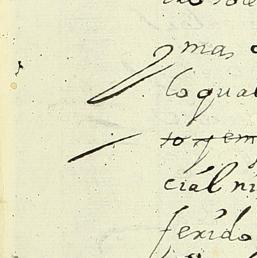 mas
lo qual
to y em
cial ni
ferido